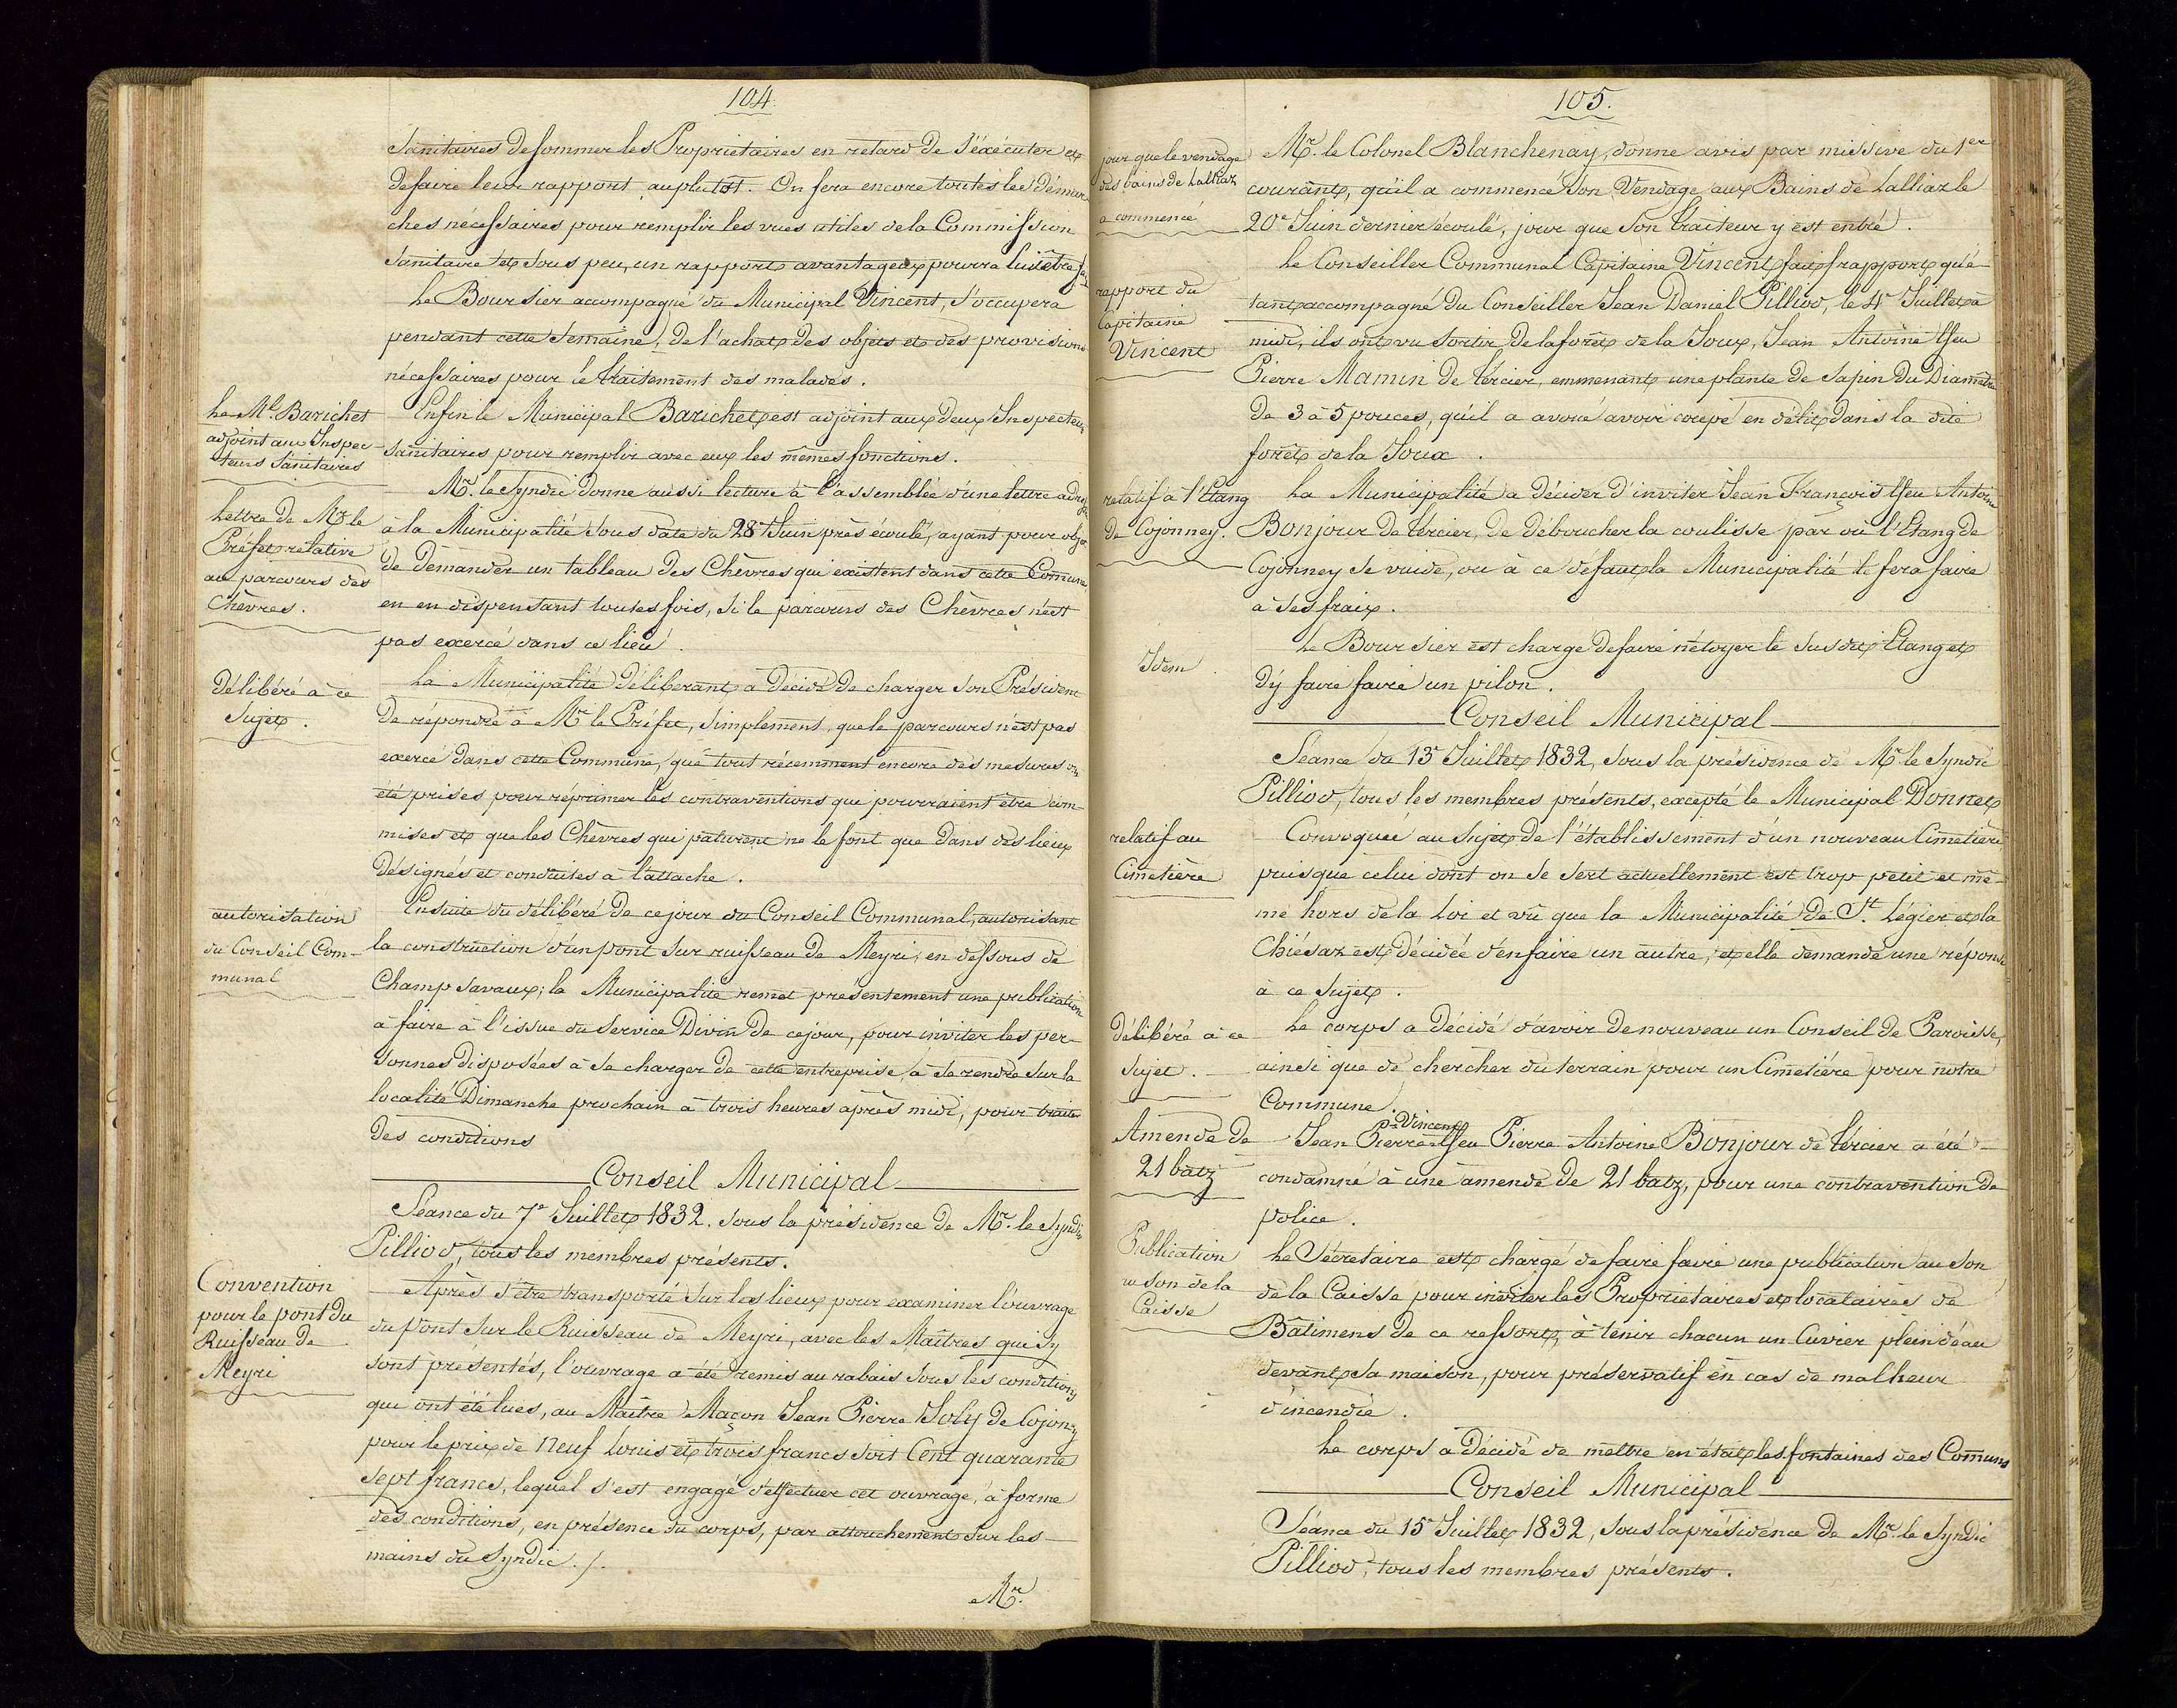 104.
Sanitaires de sommer les Propriétaires en retard de s'éxécuter et
de faire leur rapport au plutôt. On fera encore toutes les démar-
ches nécessaires pour remplir les vues utiles de la Commission
Sanitaire et sous peu, un rapport avantageux pourra lui être
Le Boursier accompagné du Municipal Vincent, s'occupera
pendant cette Semaine, de l'achat des objets et des provisions
nécessaires pour le traitement des malades.
Le Ml. Barichet
adjoint aux Inspec-
teurs Sanitaires
Enfin le Municipal Barichet est adjoint aux deux Inspecteurs
Sanitaires pour remplir avec eux les mêmes fonctions.
Lettre de Mr. le
Préfet relative
au parcours des
Chèvres.
Mr. le Syndic donne aussi lecture à l'assemblée d'une lettre
à la Municipalité sous date du 28e Juin près écoulé, ayant pour objet
de demander un tableau des Chèvres qui existent dans cette Comune,
en en dispensant toutes fois, si le parcours des Chèvres n'est
pas exercé dans ce lieu.
Délibéré à ce
Sujet.
La Municipalité déliberant a décidé de charger son Président
de répondre à Mr. le Préfet, simplement, que le parcours n'est pas
exercé dans cette Commune, que tout récemment encore des mesures ont
été prises pour réprimer les contraventions qui pourraient être com-
mises et que les Chèvres qui paturent ne le font que dans des lieux
désignés et conduites à l'attache.
autorisation
du Conseil Com-
munal
Ensuite du délibéré de ce jour du Conseil Communal, autorisant
la construction d'un pont sur ruisseau de Meyri, en dessous de
Champ Savaux; la Municipalité remet presentement une publication
à faire à l'issue du Service Divin de ce jour, pour inviter les per-
sonnes disposées à se charger de cette entreprise, à se rendre sur la
localité Dimanche prochain à trois heures après midi, pour traiter
des conditions
Conseil Municipal
Séance du 7e Juillet 1832. sous la présidence de Mr. le Syndic
Pilliod, tous les membres présents.
Convention
pour le pont du
Ruisseau de
Meyri
Après s'être transporté sur les lieux pour examiner l'ouvrage
du pont sur le Ruisseau de Meyri, avec les Maîtres qui s'y
sont présentés, l'ouvrage a été remis au rabais sous les conditions
qui ont été lues, au Maître Maçon Jean Pierre Joly de Cojonny
pour le prix de neuf Louis et trois francs soit Cent quarante
sept francs, lequel s'est engagé d'effectuer cet ouvrage, à forme
des conditions, en présence du corps, par attouchement sur les
mains du Syndic. /.
Mr.
105.
jour que le vendage
des bains de Lalliaz
a commencé
Mr. le Colonel Blanchenay, donne avis par missive du 1er
courant, qu'il a commencé son Vendage aux Bains de Lalliaz le
20e Juin dernier écoulé, jour que son traiteur y est entré.
rapport du
Capitaine
Vincent
Le Conseiller Communal Capitaine Vincent fait rapport qu'é-
tant accompagné du Conseiller Jean Daniel Pilliod, le 4e Juillet à
midi, ils ont vu sortir de la forêt de la Joux, Jean Antoine ffeu
Pierre Mamin de tércier, emmenant une plante de Sapin du Diamètre
de 3 à 5 pouces, qu'il a avoué avoir coupé en délit dans la dite
forêt de la Joux.
relatif à l'Etang
de Cojonney.
La Municipalité a décider d'inviter Jean François ffeu Antoine
Bonjour de tércier, de déboucher la coulisse par où l'Etang de
Cojonney se vuide, ou à ce défaut la Municipalité le fera faire
à ses fraix.
Idem
Le Boursier est chargé de faire nétoyer le susdit Etang et
d'y faire faire un pilon.
Conseil Municipal
Séance du 13e Juillet 1832, sous la présidence de Mr. le Syndic
Pilliod, tous les membres présents, excepté le Municipal Donnet
relatif au
Cimetière
Convoquée au sujet de l'établissement d'un nouveau Cimetière
puisque celui dont on se sert actuellement est trop petit et mê-
me hors de la Loi et vû que la Municipalité de St. Légier et la
Chiésaz est décidée d'en faire un autre, et elle demande une réponse
à ce sujet.
Délibéré à ce
sujet.
Le corps a décidé d'avoir de nouveau un Conseil de Paroisse,
ainsi que de chercher du terrain pour un Cimetière pour notre
Commune.
Amende de
21 batz
Vincent
Jean Pierre ffeu Pierre Antoine Bonjour de tércier a été
condamné à une amende de 21 batz, pour une contravention de
police.
Publication
au son de la
Caisse
Le Sécretaire est chargé de faire faire une publication au son
de la Caisse pour inviter les Propriétaires et locataires de
Bâtimens de ce ressort, à tenir chacun un Cuvier plein d'eau
devant sa maison, pour préservatif en cas de malheur
d'incendie.
Le corps a décidé de mettre en état les fontaines des Comuns
Conseil Municipal
Séance du 15e Juillet 1832, sous la présidence de Mr. le Syndic
Pilliod, tous les membres présents.